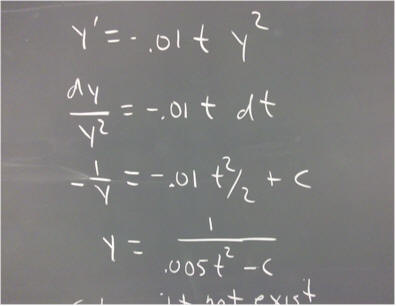 y' = -.01 t y²
dy/y² = -.01 t dt
-1/y = -.01 t²/2 + c
y = 1/(.005t² - c)
not exist